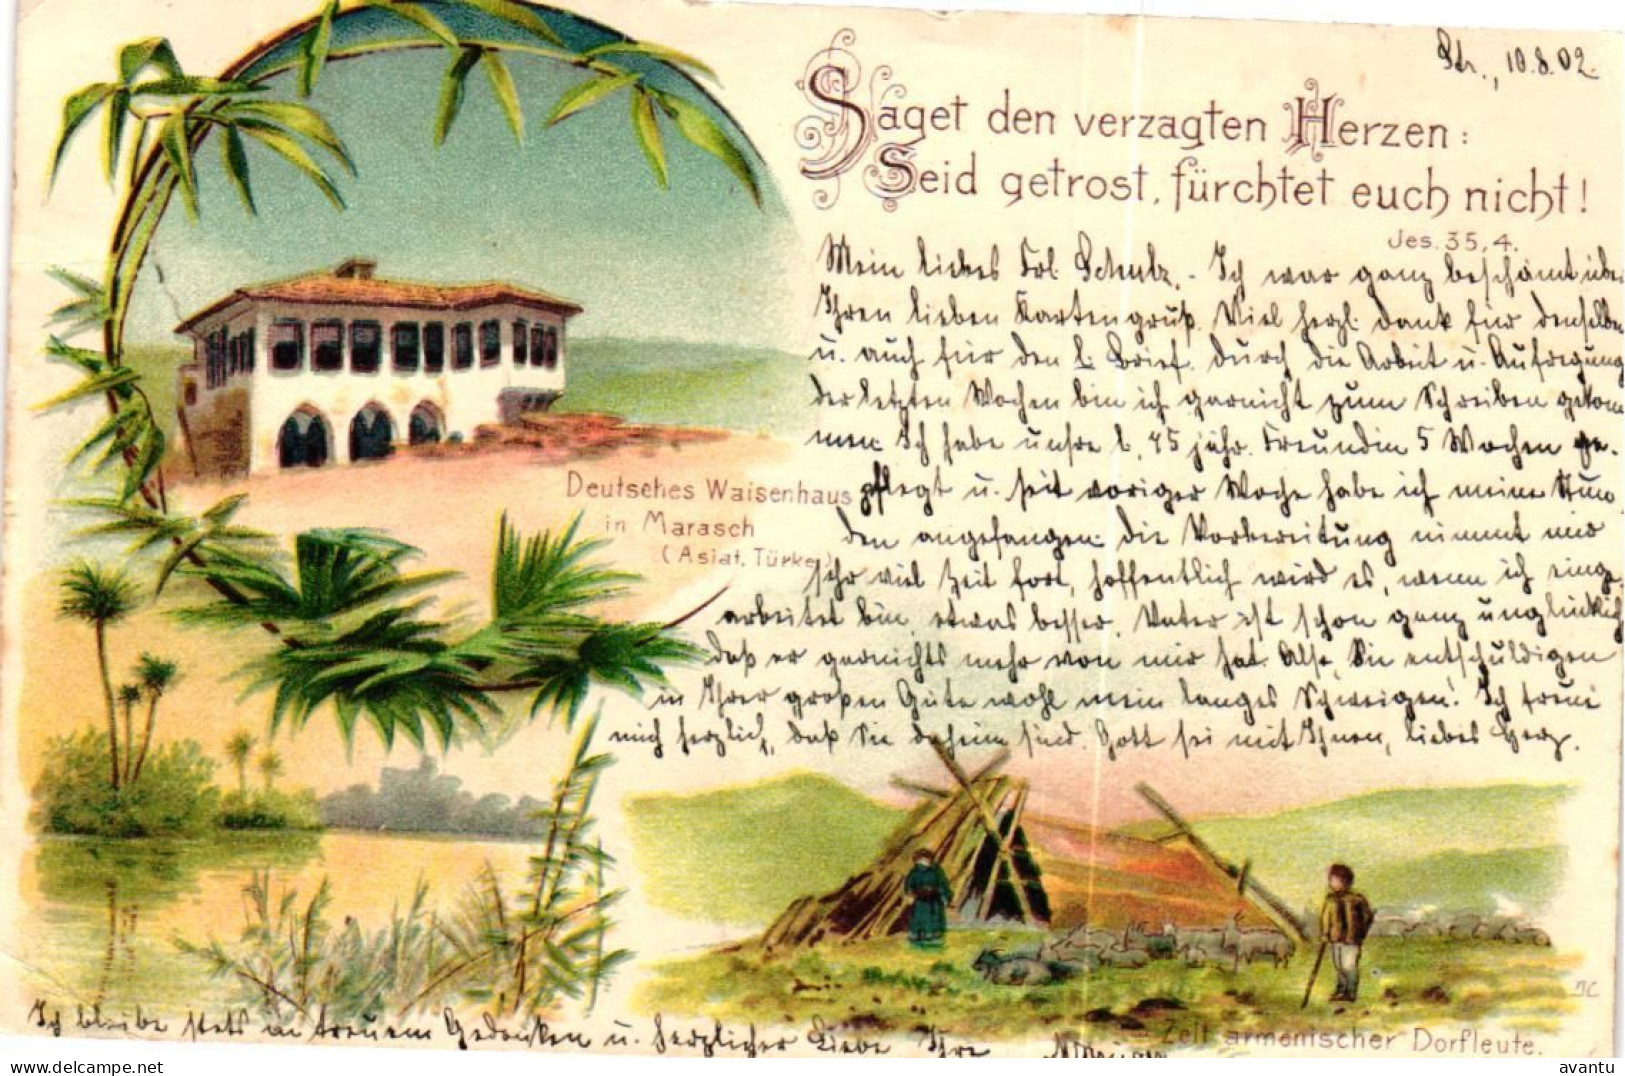 Str., 10.8.02.
Saget den verzagten Herzen:
Seid getrost, fürchtet euch nicht!
Jes. 35,4.
Mein liebes Frl. Schulz, - Ich war ganz beschämt über
Ihren lieben Kartengruß. Viel herzl. Dank für denselben
u. auch für den l. Brief. Durch die Arbeit u. Aufregung
der letzten Wochen bin ich garnicht zum Schreiben gekom
men. Ich habe unsre l. 75 jähr. Freundin 5 Wochen ge-
pflegt u. seit voriger Woche habe ich meine Stun
den angefangen. die Vorbereitung nimmt mir
sehr viel Zeit fort, hoffentlich wird es, wenn ich einge-
arbeitet bin, etwas besser. Vater ist schon ganz unglücklich
daß er garnichts mehr von mir hat. Also, Sie entschuldigen
in Ihrer großen Güte wohl mein langes Schweigen! Ich freue
mich herzlich, daß Sie daheim sind. Gott sei mit Ihnen, liebes Herz.
Deutsches Waisenhaus
in Marasch
(Asiat. Türkei)
JC
Zelt armenischer Dorfleute.
Ich bleibe stets in treuem Gedenken u. herzlicher Liebe Ihre
avantu